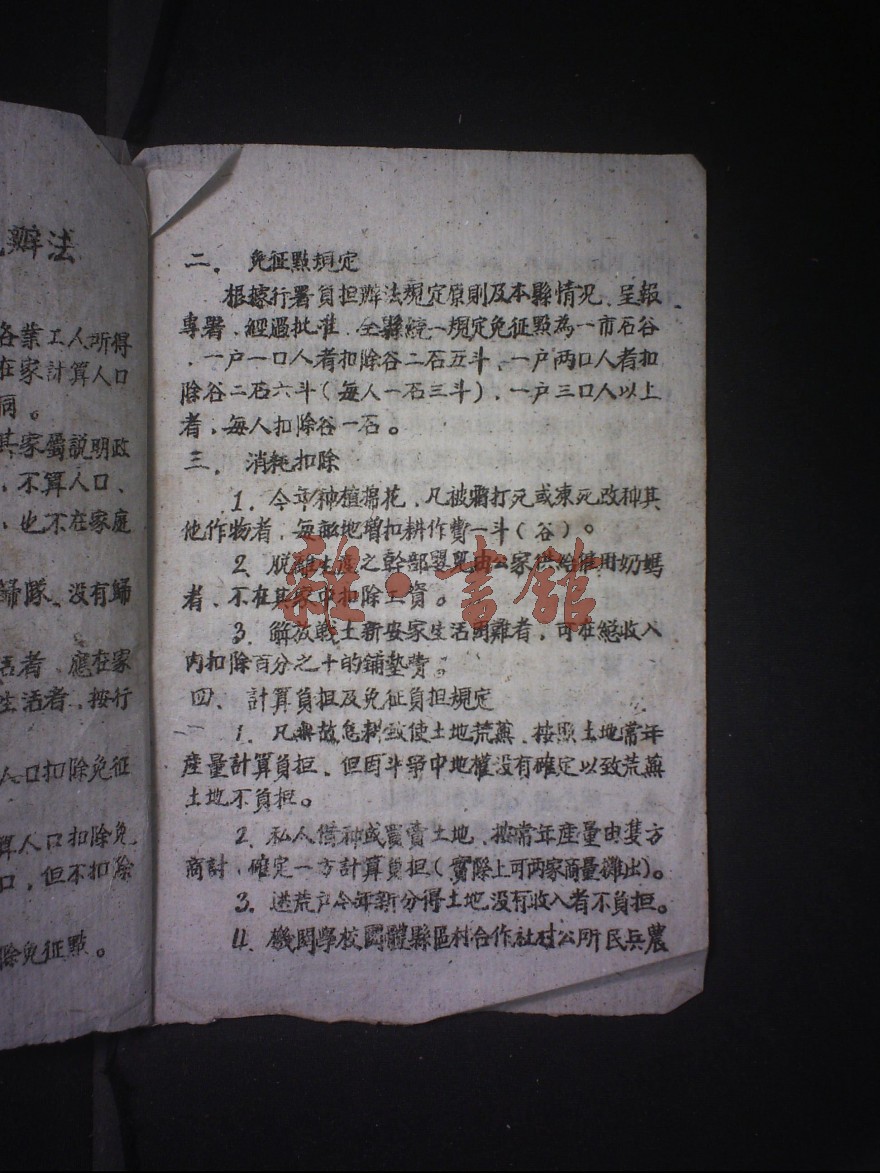 辦法
各業工人所得
在家計算人口
同。
其家屬説明政
，不算人口、
，也不在家庭
歸隊、没有歸
活者，應在家
生活者，按行
人口扣除免征
算人口扣除免
口，但不扣除
除免征點。
二．免征點規定
根據行署負担辦法規定原則及本縣情况、呈報
專署、經過批准、全縣統一規定免征點為一市石谷
，一户一口人者扣除谷二石五斗、一户两口人者扣
除谷二石六斗（每人一石三斗），一户三口人以上
者，每人扣除谷一石。
三．消耗扣除
1．今年种植棉花，凡被雹打死或凍死改种其
他作物者，每畝地增扣耕作費一斗（谷）。
2．脱離生産之幹部嬰兒由公家供给僱用奶媽
者、不在其家中扣除工資。
3．解放戰士新安家生活困難者，可在總收入
内扣除百分之十的鋪墊費。
四、計算負担及免征負担規定
1．凡無故怠耕致使土地荒蕪、按照土地常年
産量計算負担、但因斗爭中地權没有確定以致荒蕪
土地不負担。
2．私人借种或買賣土地、按常年産量由雙方
商討，確定一方計算負担（實際上可两家商量攤出）。
3．逃荒户今年新分得土地没有收入者不負担。
4．機関學校團體縣區村合作社村公所民兵農
雜·書館